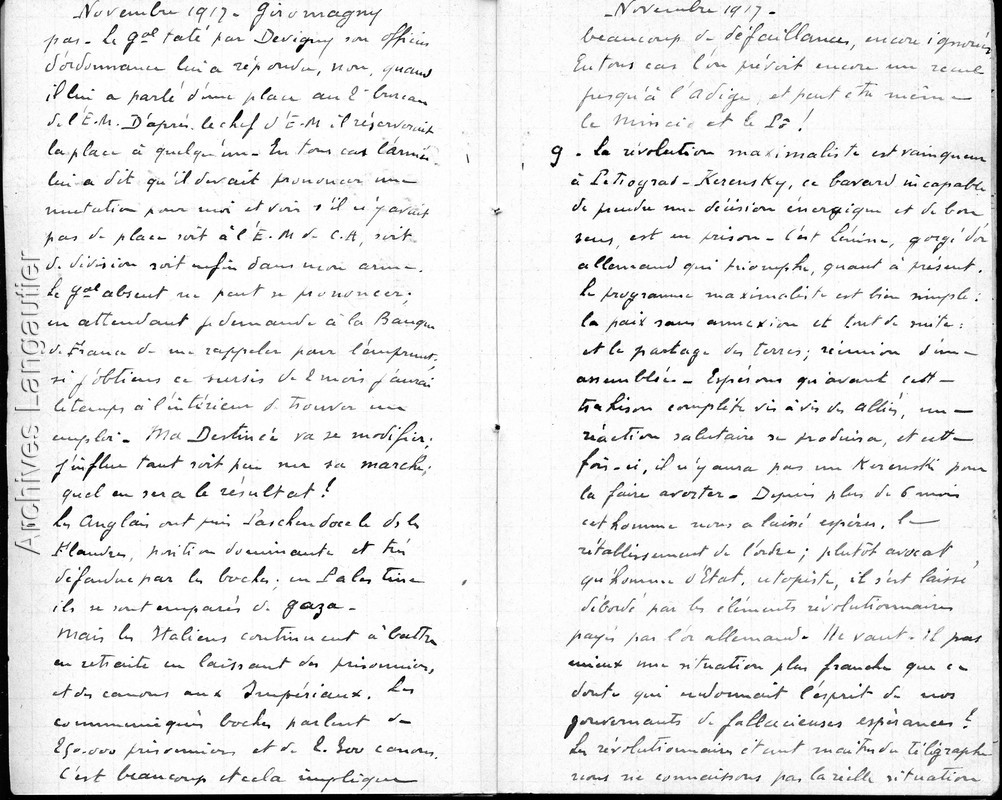 Novembre 1917 - Giromagny
pas - Le gal taté par Devigny son officier
d'ordonnance lui a répondu, non, quand
il lui a parlé d'une place au 2e bureau
de l'E.M. D'après le chef d'E-M il réserverait
la place à quelqu'un - En tous cas l'armée
lui a dit qu'il devait prononcer une
mutation pour moi et voir s'il n'y avait
pas de place soit à l'E.M de C.A, soit
de division soit enfin dans mon arme.
Le gal absent ne peut se prononcer;
en attendant je demande à la Banque
de France de me rappeler pour l'emprunt,
si j'obtiens ce sursis de 2 mois j'aurai
le temps à l'intérieur de trouver un
emploi - Ma Destinée va se modifier;
j'influe tant soit peu sur sa marche;
quel en sera le résultat!
Les Anglais ont pris Paschendaele ds les
Flandres, position dominante et très
défendue par les boches; en Palestine
ils se sont emparés de gaza -
Mais les Italiens continuent à battre
en retraite en laissant des prisonniers,
et des canons aux Impériaux. Les
communiqués boches parlent de
250.000 prisonniers et de 2.300 canons.
C'est beaucoup et cela implique
Novembre 1917 -
beaucoup de défaillances, encore ignorées
En tous cas l'on prévoit encore un recul
jusqu'à l'Adige, et peut etre même
le Mincio et le Pô!
9 - La révolution maximaliste est vainqueur
à Petrograd - Kerensky, ce bavard incapable
de prendre une décision énergique et de bon
sens, est en prison - C'est Lénine, gorgé d'or
allemand qui triomphe, quant à présent.
Le programme maximaliste est bien simple:
la paix sans annexion et tout de suite:
et le partage des terres; réunion d'une
assemblée - Espérons qu'avant cette
trahison complète vis à vis des alliés, une
réaction salutaire se produira, et cette
fois-ci, il n'y aura pas un Kerenski pour
la faire avorter - Depuis plus de 6 mois
cet homme nous a laissé espérer, le
rétablissement de l'ordre; plutôt avocat
qu'homme d'Etat, utopiste, il s'est laissé
débordé par les éléments révolutionnaires
payés par l'or allemand. Ne vaut-il pas
mieux une situation plus franche que ce
doute qui endormait l'esprit de nos
gouvernants de fallacieuses espérances?
Les révolutionnaires étant maitres du télégraphe
nous ne connaissons pas la réelle situation
Archives Langautier